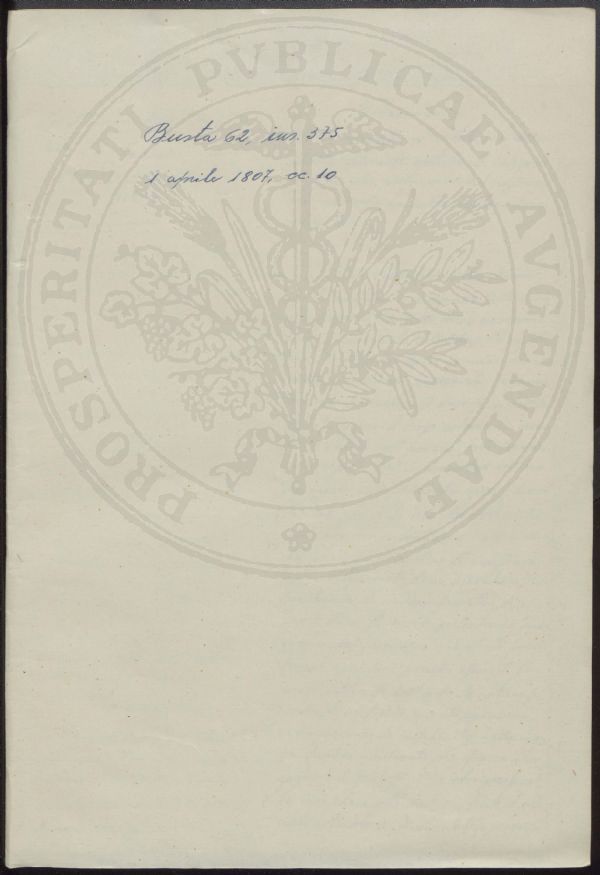 Busta 62, ins. 375
1 aprile 1807, cc. 10
PROSPERITATI PVBLICAE AVGENDAE